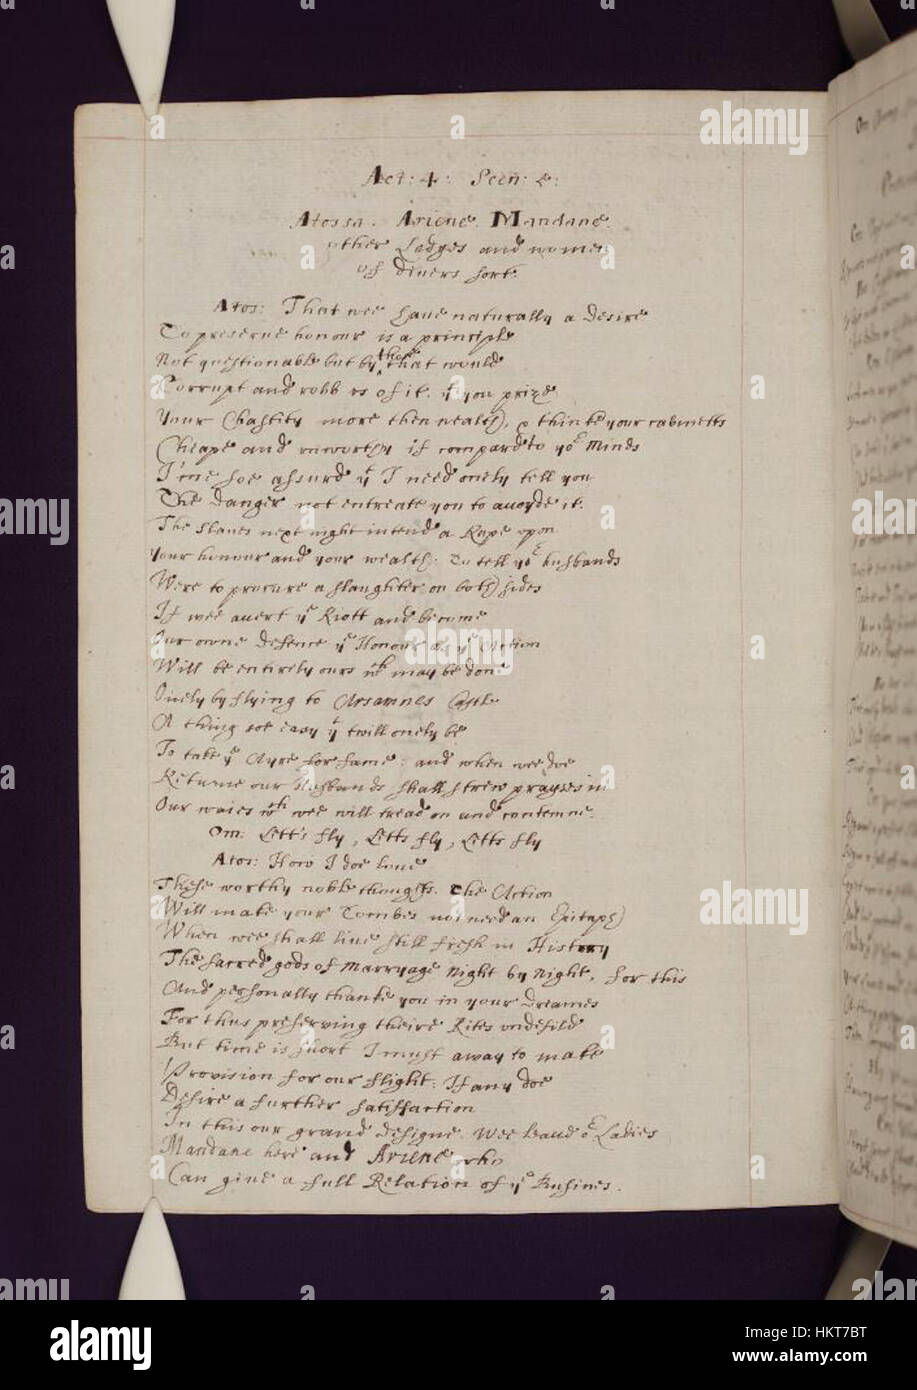 Act: 4: Scen: 2:
Atossa. Ariene. Mandane.
other Ladyes and women
of divers sort.
Atos: That wee haue naturally a desire
To preserue honour is a principle
Not questionable but by those that would
Corrupt and robb vs of it. if you prize
Your Chastity more then wealth, & thinke your cabinetts
Cheape and vnworthy if compard to yor Minds
T'ine soe assurd yt I need onely tell you
The danger not entreate you to auoyde it.
The Slaues next night intend a Rape vpon
Your honour and your wealth: To tell yor husbands
Were to procure a slaughter on both sides
If wee auert ye Riott and become
Our owne defence ye Honour as ye Action
Will be entirely ours wch may be done
Onely by flying to Arsamnes Castle
A thing soe easy yt twill onely be
To take ye Ayre for fame: and when wee doe
Returne our Husbands shall strew prayses in
Our waies wch wee will tread on and contemne.
Om: Lett's fly, Letts fly, Letts fly
Atos: How I doe loue
These worthy noble thoughts. The Action
Will make your Tombes not need an Epitaph
When wee shall liue still fresh in History
The sacred gods of Marryage Night by Night, for this
And personally thanke you in your dreames
For thus preserving theire Rites vndefild
But time is short I must away to make
Provision for our flight: If any doe
Desire a further satisfaction
In this our grand designe. Wee leaue ye Ladies
Mandane here and Ariene who
Can giue a full Relation of ye Busines.
alamy
Image ID: HKT7BT
www.alamy.com